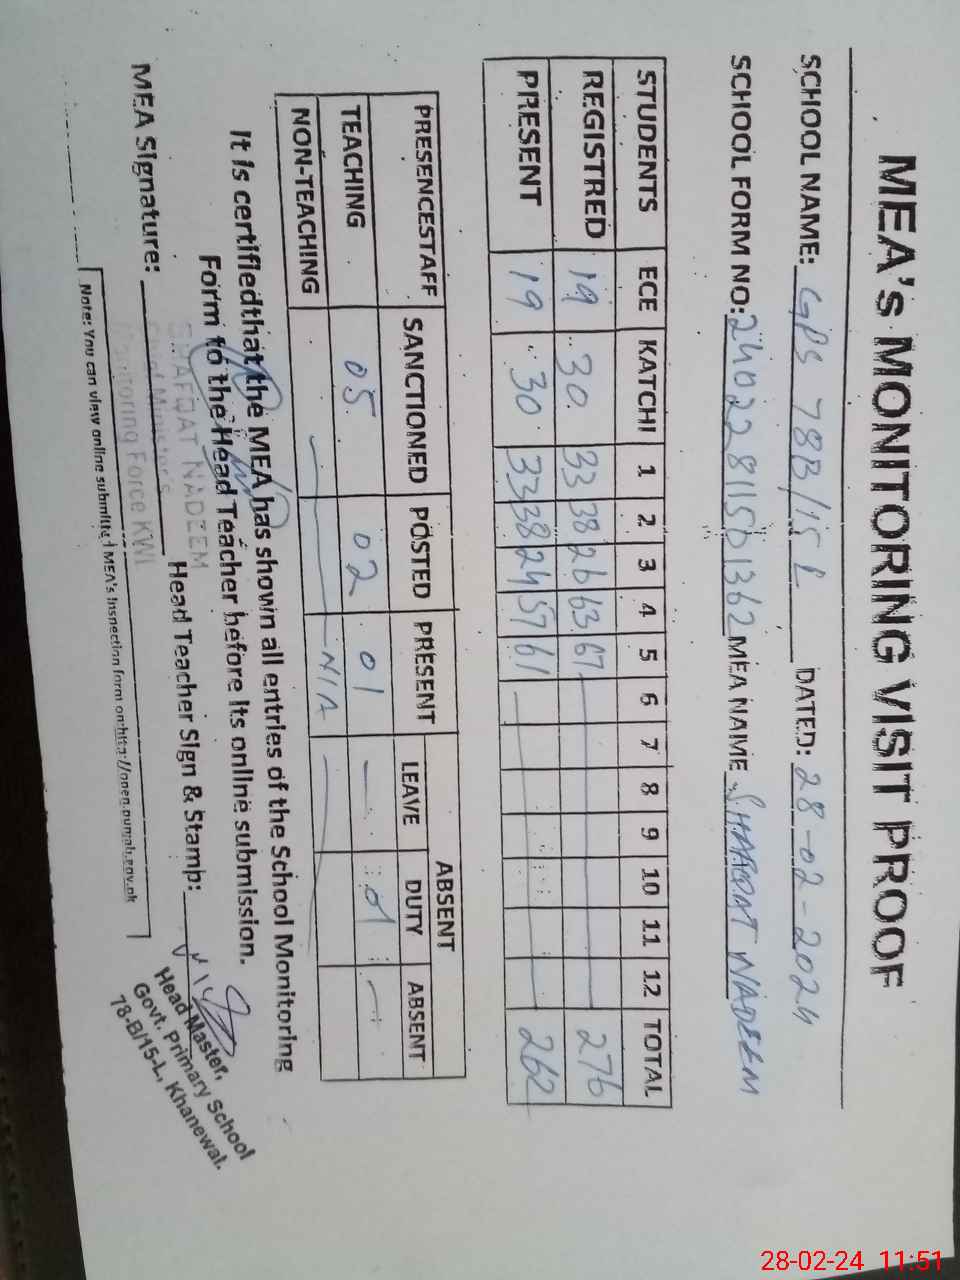 MEA's MONITORING VISIT PROOF
SCHOOL NAME: GPS 78B/15 L DATED: 28-02-2024
SCHOOL FORM NO: 24022811501362 MEA NAME SHAFQAT NADEEM
STUDENTS ECE KATCHI 1 2 3 4 5 6 7 8 9 10 11 12 TOTAL
REGISTRED 19 30 33 38 26 63 67 276
PRESENT 19 30 33 38 24 57 61 262
PRESENCESTAFF SANCTIONED POSTED PRESENT ABSENT
LEAVE DUTY ABSENT
TEACHING 05 02 01 — 01 —
NON-TEACHING — — N/A —
It is certifiedthat the MEA has shown all entries of the School Monitoring
Form to the Head Teacher before its online submission.
MEA Signature: Head Teacher Sign & Stamp:
SHAFQAT NADEEM
Chief Minister's
Monitoring Force KWL
Head Master,
Govt. Primary School
78-B/15-L, Khanewal.
Note: You can view online submitted MEA's Inspection form on:http://open.punjab.gov.pk
28-02-24 11:51